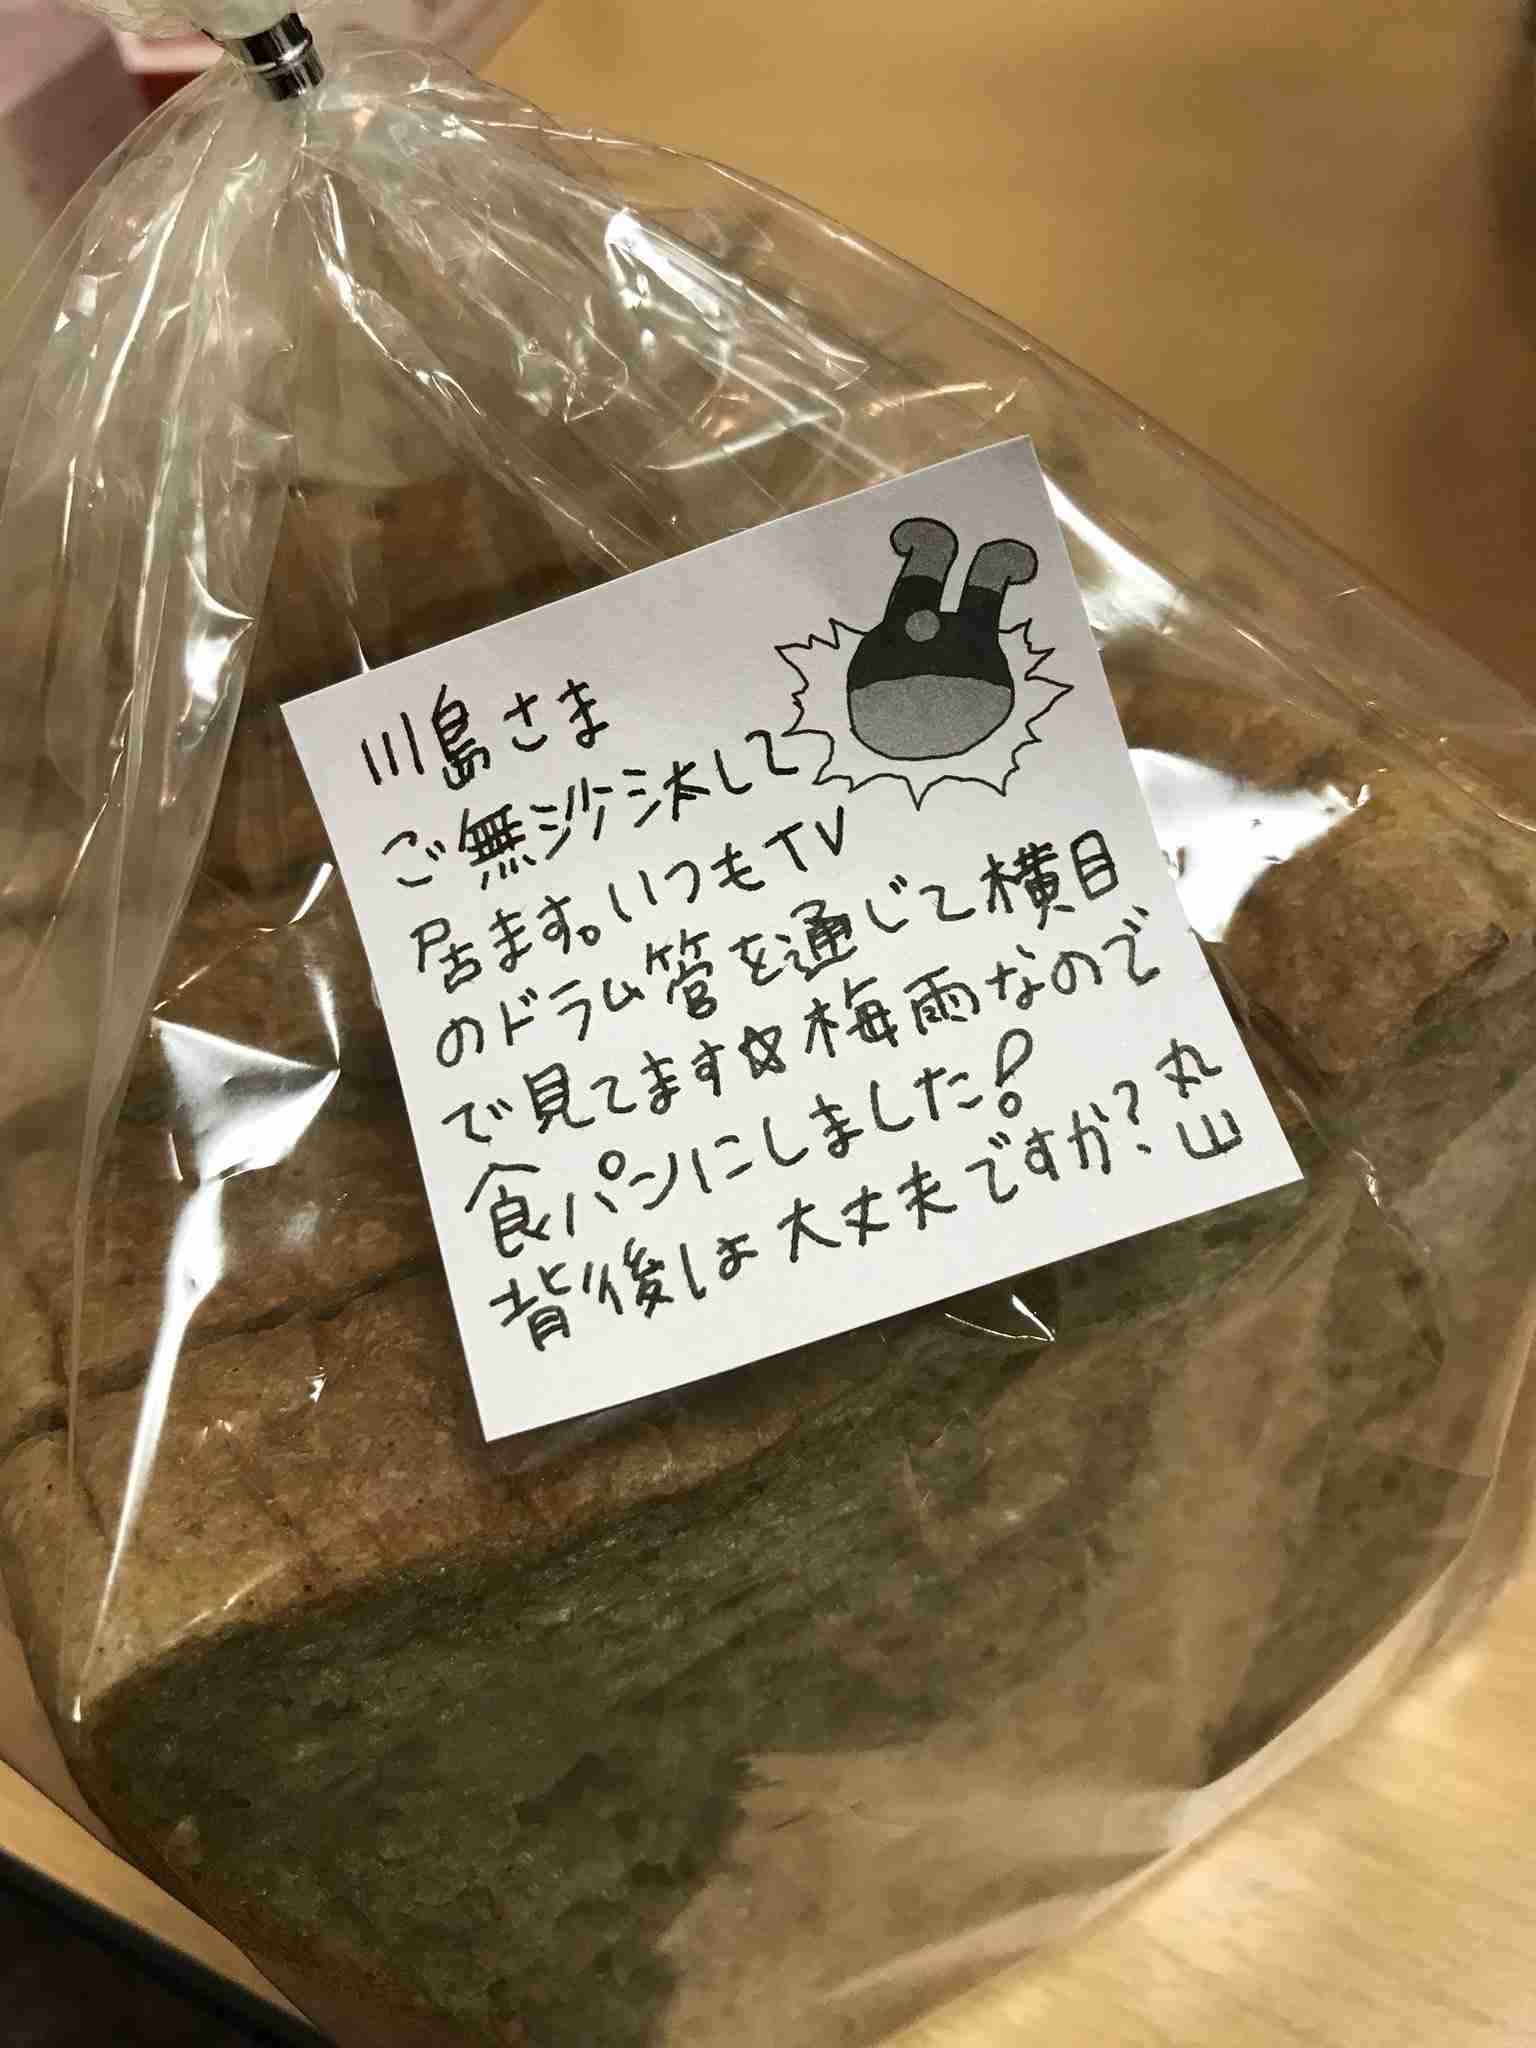 川島さま
ご無沙汰して
居ます。いつもTV
のドラム管を通じて横目
で見てます☆梅雨なので
食パンにしました!
背後は大丈夫ですか?丸山